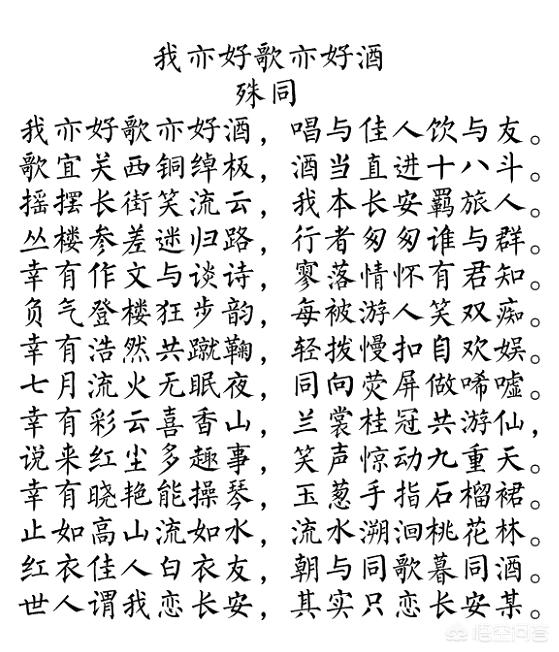 我亦好歌亦好酒
殊同
我亦好歌亦好酒，唱与佳人饮与友。
歌宜关西铜绰板，酒当直进十八斗。
摇摆长街笑流云，我本长安羁旅人。
丛楼参差迷归路，行者匆匆谁与群。
幸有作文与谈诗，寥落情怀有君知。
负气登楼狂步韵，每被游人笑双痴。
幸有浩然共蹴鞠，轻拨慢扣自欢娱。
七月流火无眠夜，同向荧屏做唏嘘。
幸有彩云喜香山，兰裳桂冠共游仙，
说来红尘多趣事，笑声惊动九重天。
幸有晓艳能操琴，玉葱手指石榴裙。
止如高山流如水，流水溯洄桃花林。
红衣佳人白衣友，朝与同歌暮同酒。
世人谓我恋长安，其实只恋长安某。
悟空问答